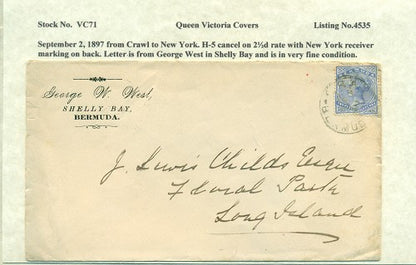 Stock No. VC71 Queen Victoria Covers Listing No.4535
September 2, 1897 from Crawl to New York. H-5 cancel on 2½d rate with New York receiver
marking on back. Letter is from George West in Shelly Bay and is in very fine condition.
George W. West,
SHELLY BAY,
BERMUDA.
J. Lewis Childs Esqre
Floral Park
Long Island